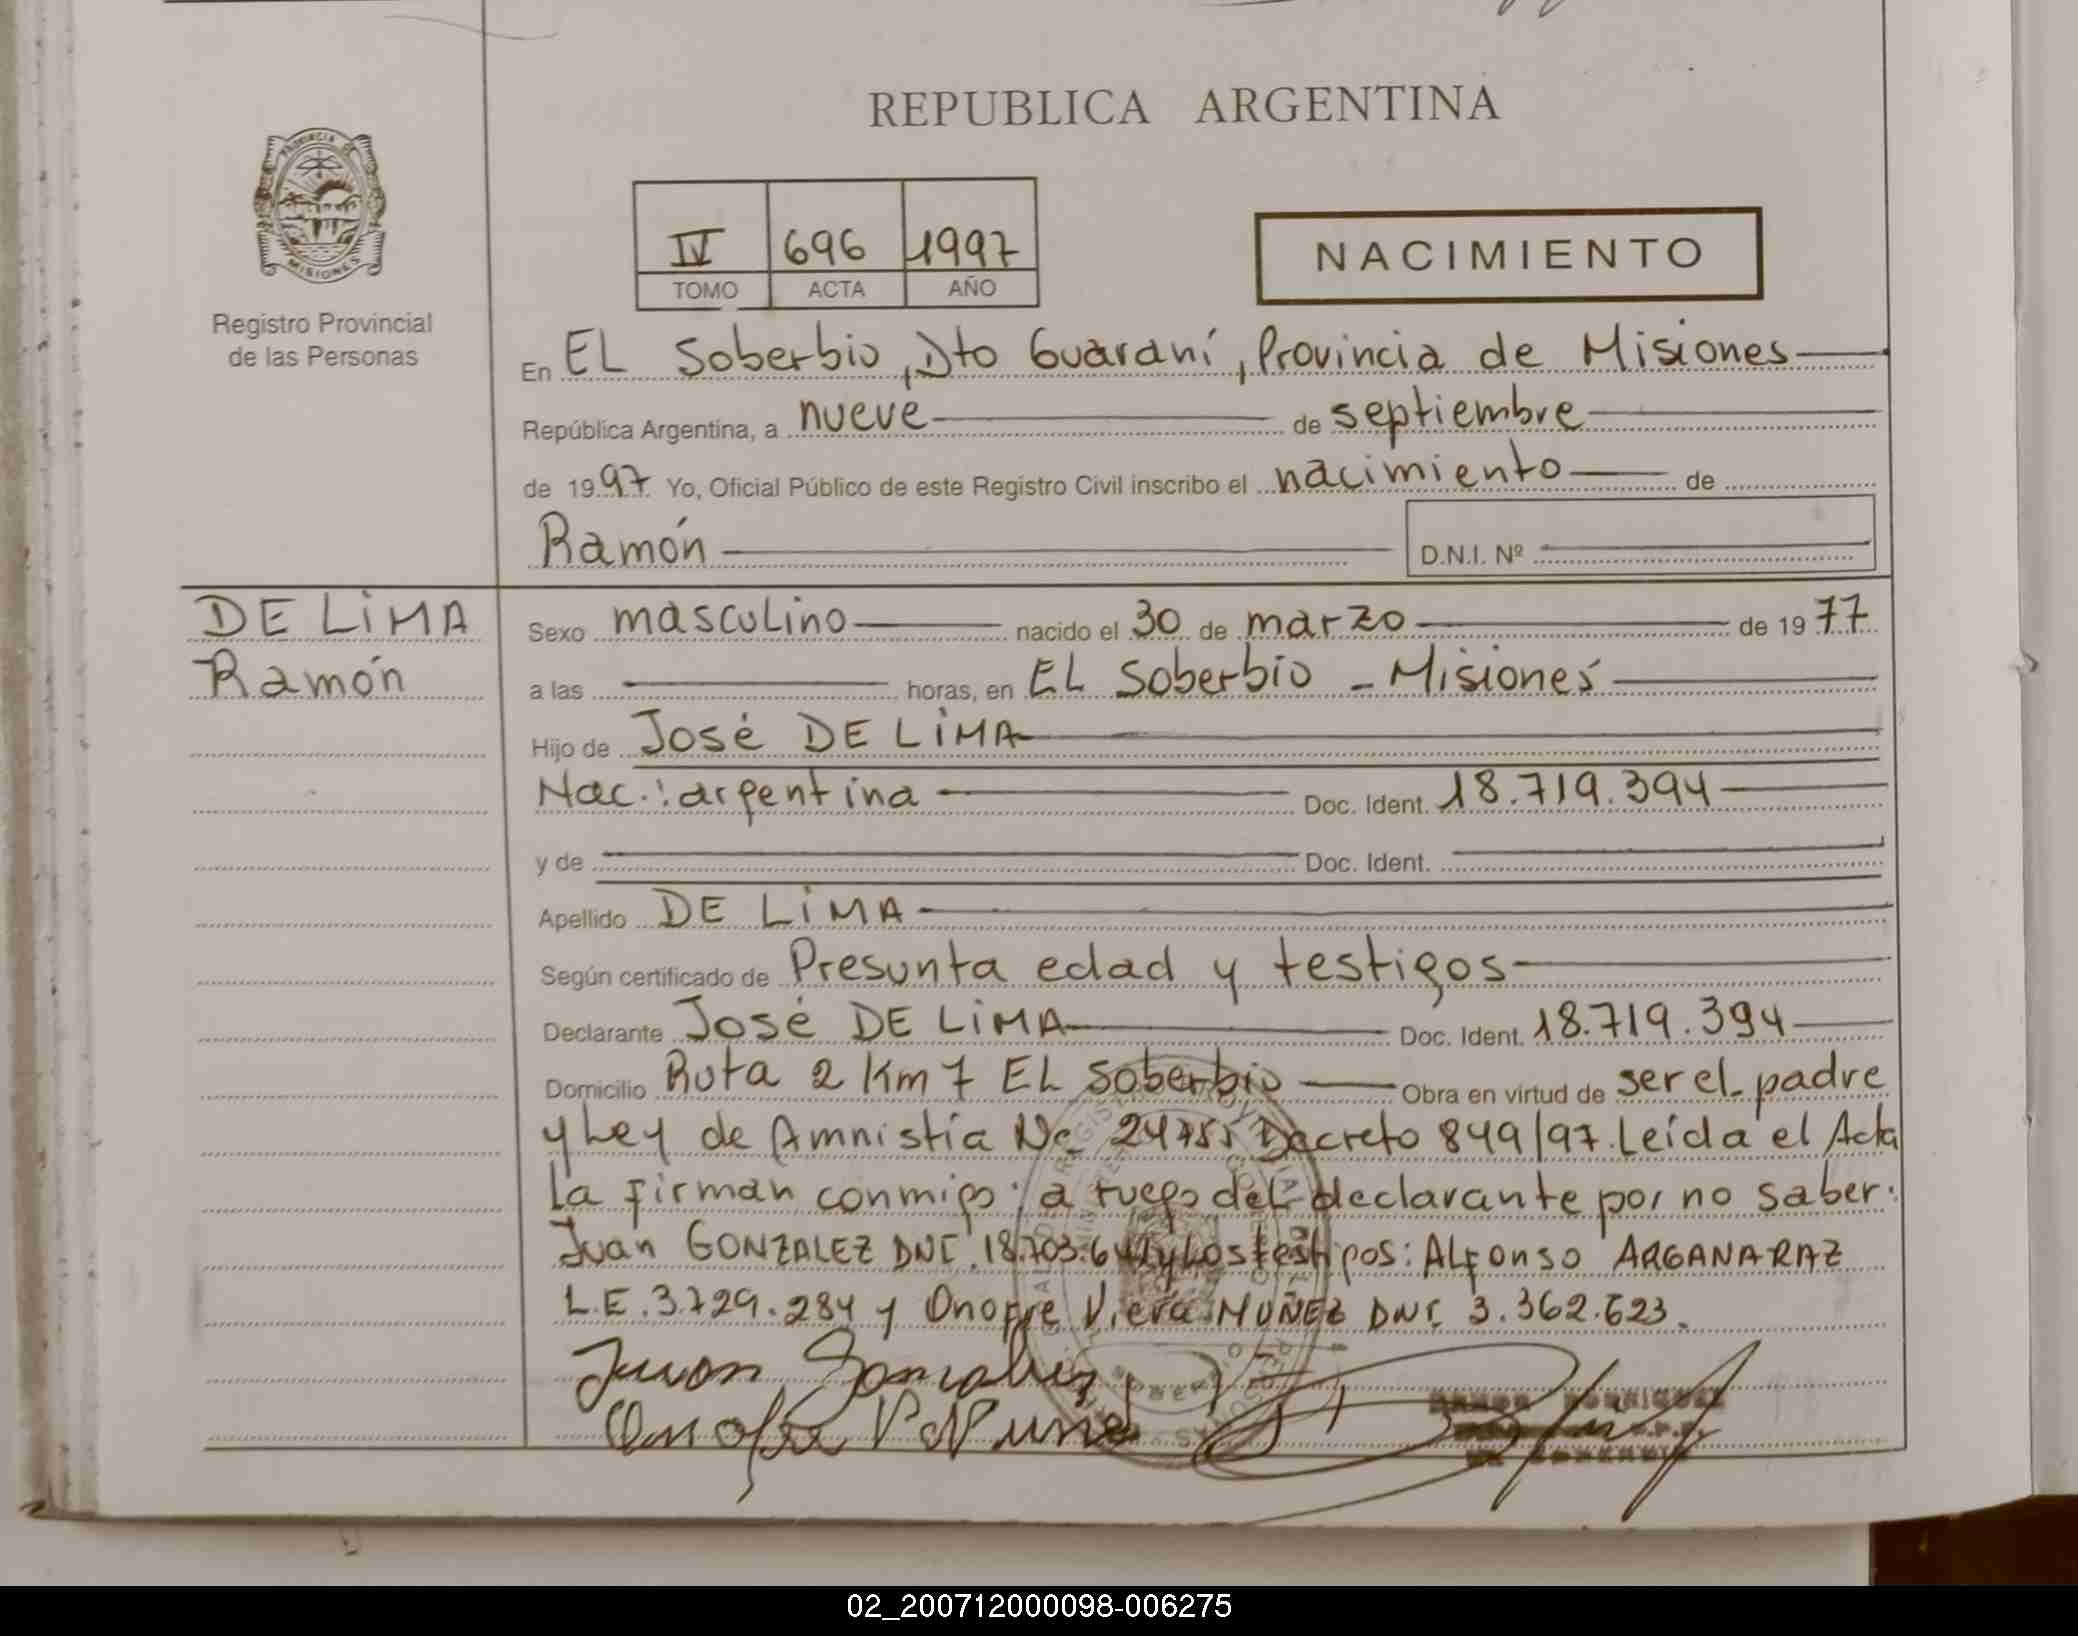 REPUBLICA ARGENTINA
PROVINCIA DE
MISIONES
Registro Provincial
de las Personas
IV 696 1997
TOMO ACTA AÑO
NACIMIENTO
En EL Soberbio, Dto Guaraní, Provincia de Misiones
República Argentina, a nueve de septiembre
de 1997 Yo, Oficial Público de este Registro Civil inscribo el nacimiento de
Ramón D.N.I. Nº
DE LiMA
Ramón
Sexo masculino nacido el 30 de marzo de 1977
a las horas, en EL Soberbio - Misiones
Hijo de José DE LiMA
Nac.: argentina Doc. Ident. 18.719.394
y de Doc. Ident.
Apellido DE LiMA
Según certificado de Presunta edad y testigos
Declarante José DE LiMA Doc. Ident. 18.719.394
Domicilio Ruta 2 Km 7 EL Soberbio Obra en virtud de ser el padre
y Ley de Amnistía No 24755 Decreto 849/97. Leída el Acta
La firman conmigo: a ruego del declarante por no saber:
Juan GONZALEZ DNI 18.703.6 y Los testigos: ALfonso ARGANARAZ
L.E. 3.729.284 y Onofre Viera MUÑEZ DNI 3.362.623.
Juan Gonzalez
Onofre V
02_200712000098-006275